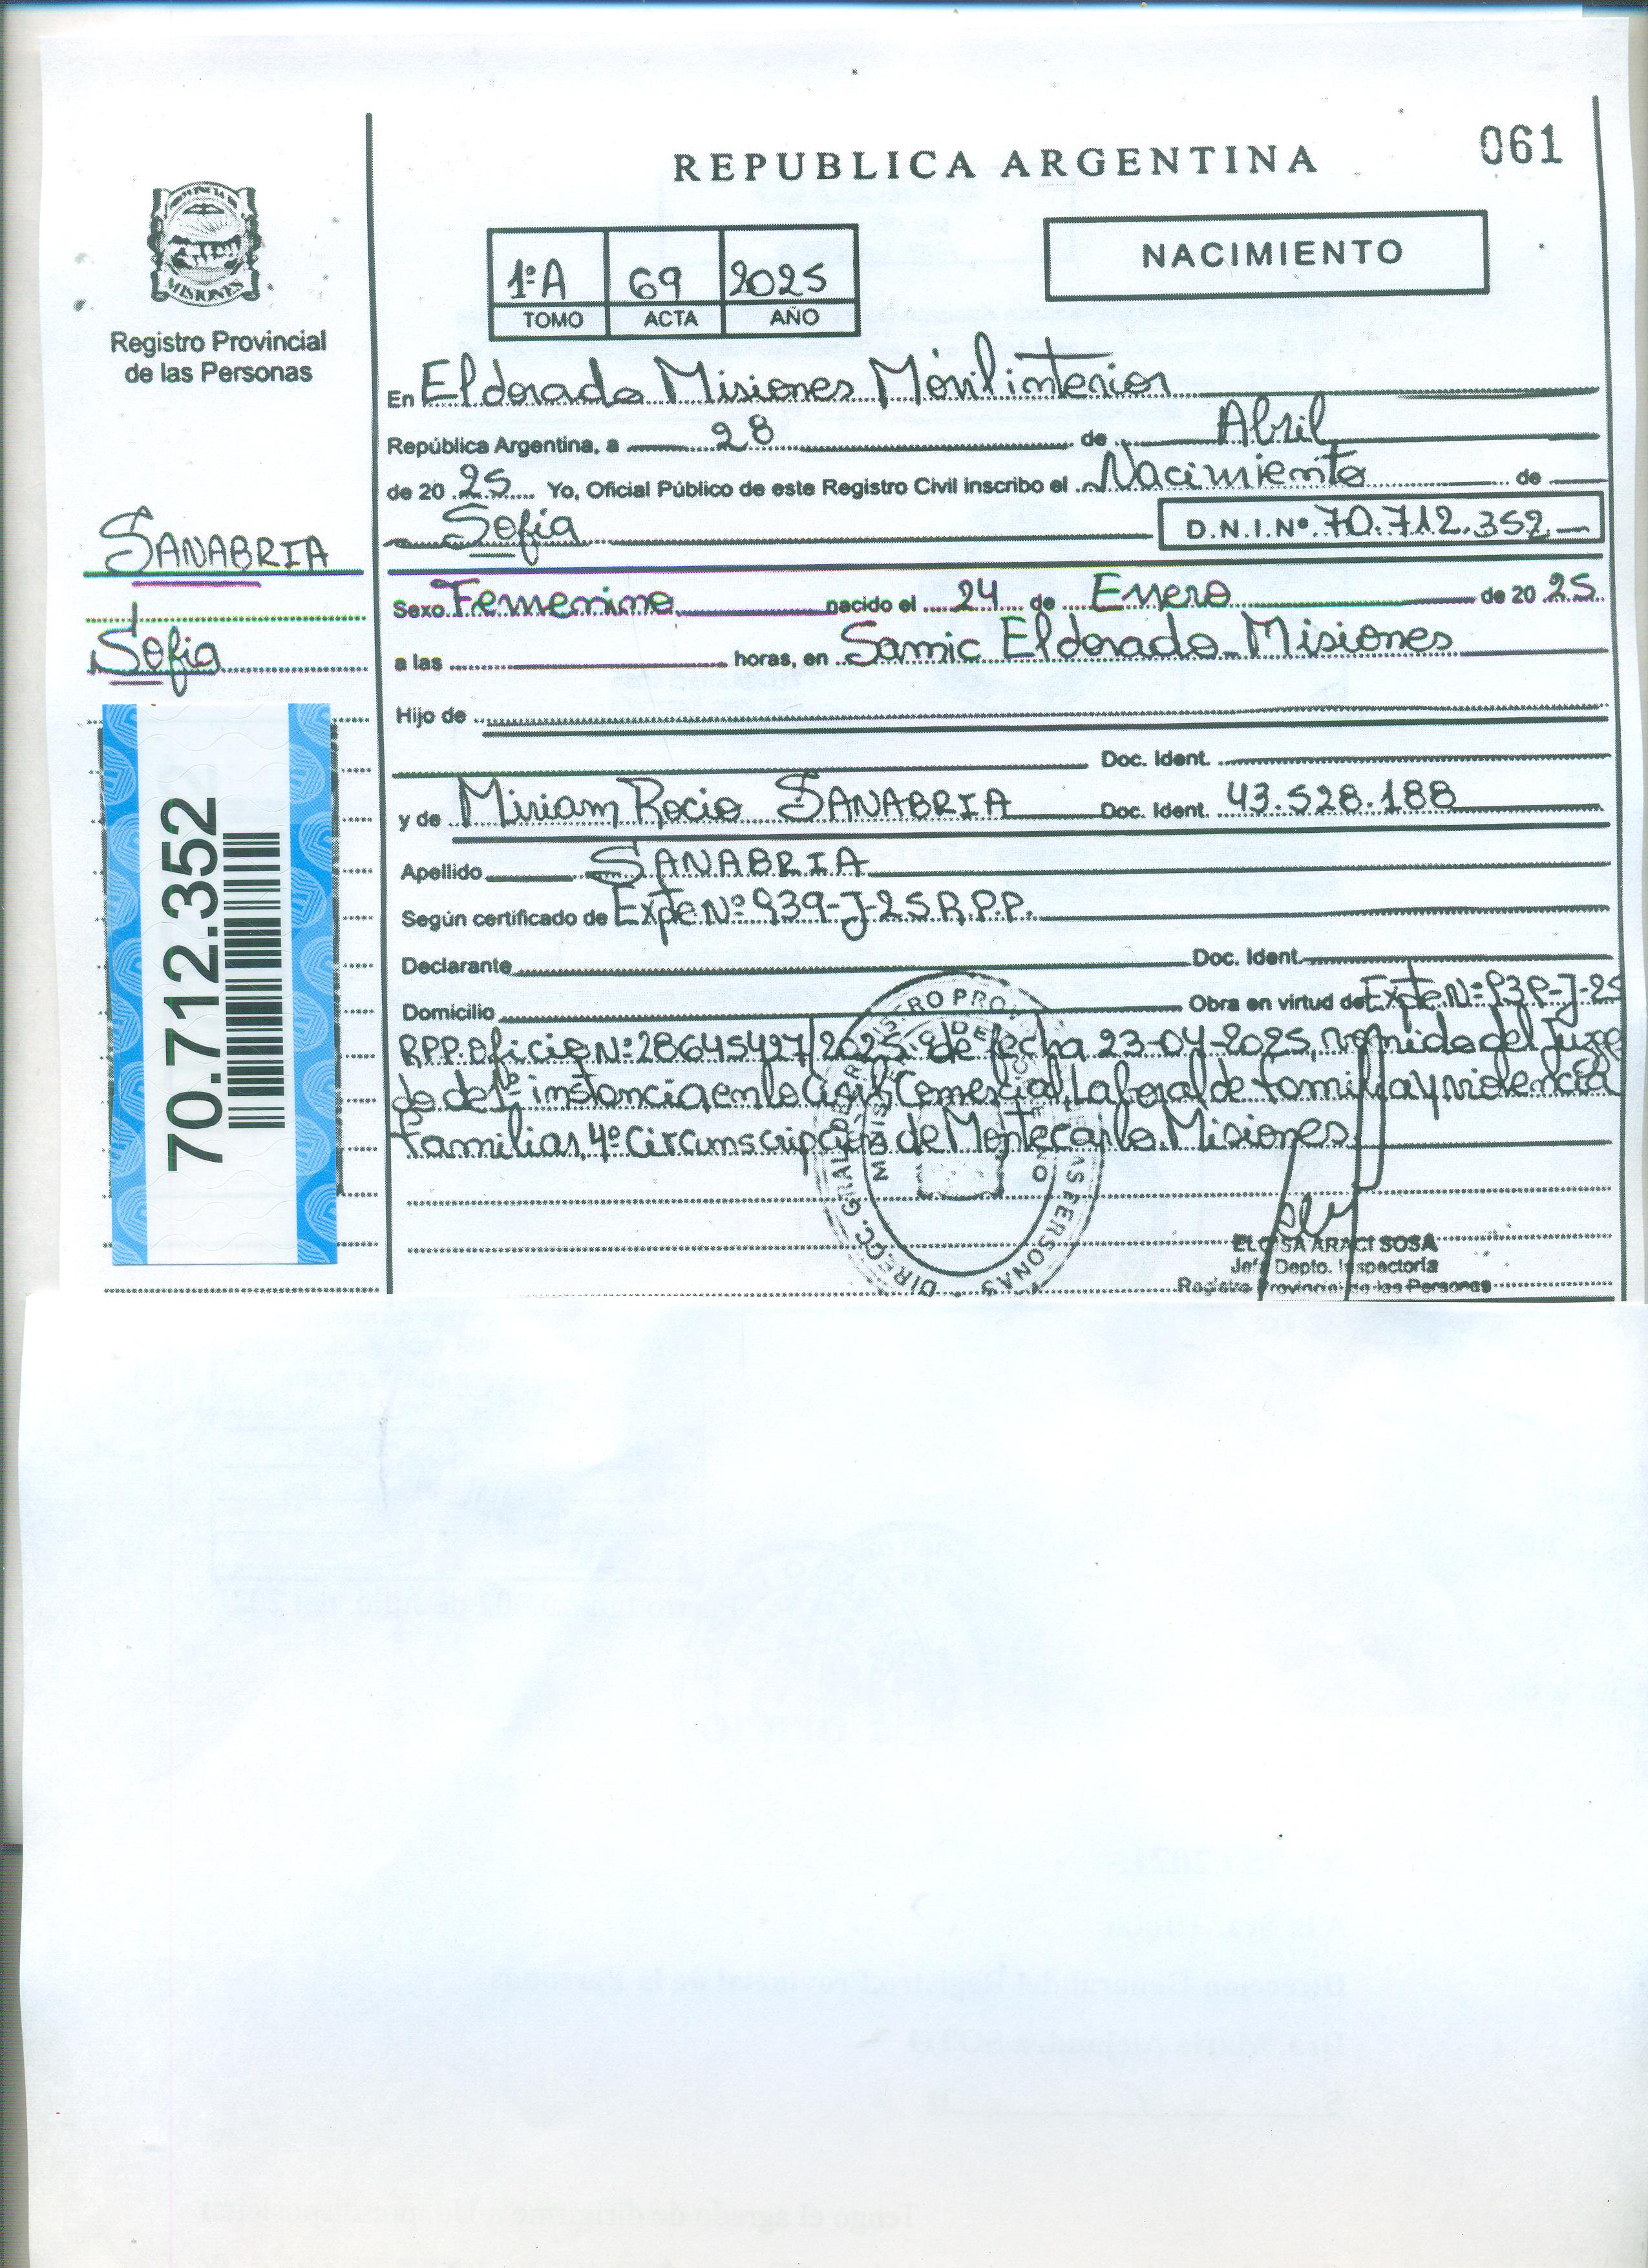 061
REPUBLICA ARGENTINA
NACIMIENTO
1ºA 69 2025
TOMO ACTA AÑO
MISIONES
Registro Provincial
de las Personas
En Eldorado Misiones Móvil interior
República Argentina, a 28 de Abril
de 20 25 Yo, Oficial Público de este Registro Civil inscribo el Nacimiento de
Sofia D.N.I.Nº 70.712.352
SANABRIA
Sofia
Sexo Femenino nacido el 24 de Enero de 20 25
a las horas, en Samic Eldorado Misiones
Hijo de
Doc. Ident.
y de Miriam Rocio SANABRIA Doc. Ident. 43.528.188
Apellido SANABRIA
Según certificado de Expte Nº 939-J-25 R.P.P.
Declarante Doc. Ident.
Domicilio Obra en virtud de Expte. Nº 939-J-25
RPP. Oficio Nº 28645427/2025 de fecha 23-04-2025, venida del Juzga
do de 1º instancia en lo Civil, Comercial, Laboral de familia y violencia
familias, 4º Circunscripción de Montecarlo Misiones
70.712.352
ELOISA ARACI SOSA
Jefa Depto. Inspectoria
Registro Provincial de las Personas